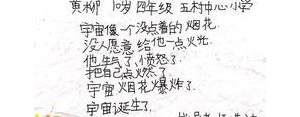 黄柳 10岁 四年级 五村中心小学
宇宙像一个没点着的烟花
没人愿意给他一点火光.
他生气了,愤怒了.
把自己点燃了.
宇宙烟花爆炸了.
宇宙诞生了.